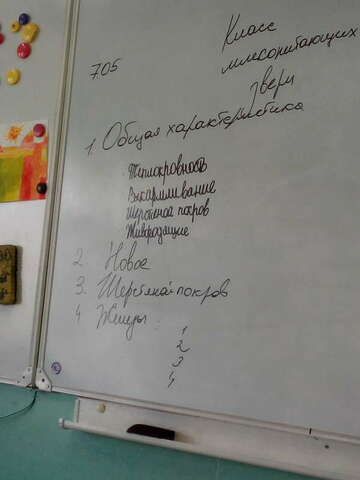 705
Класс
млекопитающих
звери
1. Общая характеристика
Теплокровность
Выкармливание
Шерстяной покров
Живородящие
2 Новое
3. Шерстяной покров
4 Жезуры :
1
2
3
4